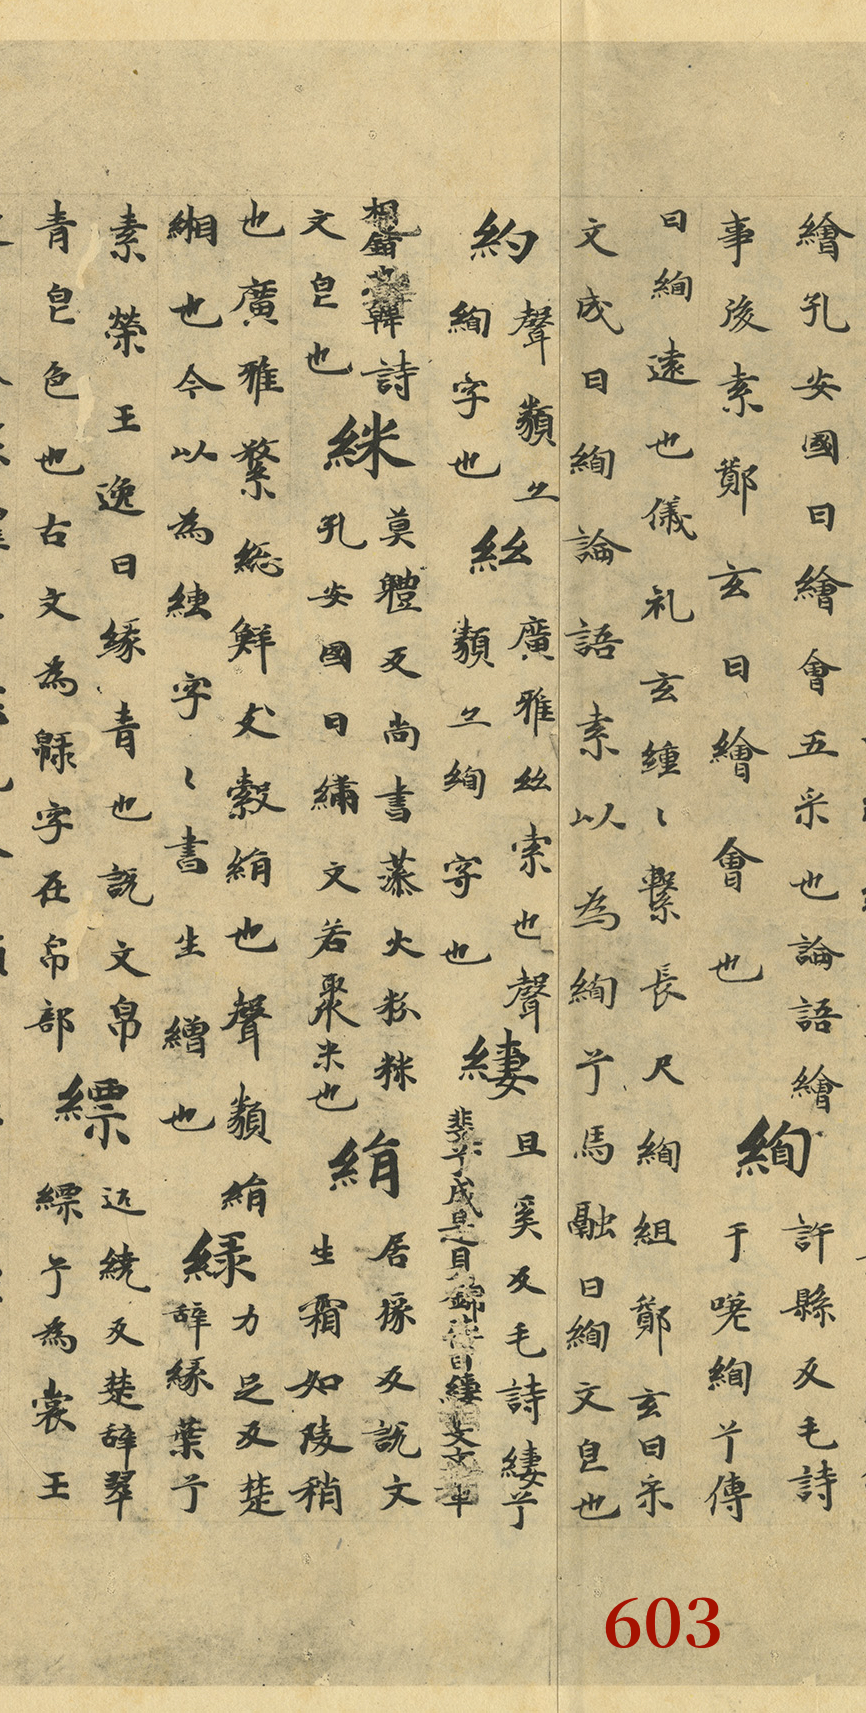 繪孔安國曰繪會五采也論語繪
事後素鄭玄曰繪會也
絢
許縣反毛詩
于嗟絢兮傳
曰絢遠也儀礼玄纁〻繫長尺絢組鄭玄曰采
文成曰絢論語素以為絢兮馬融曰絢文皃也
約
聲類亦
絢字也
絲
廣雅絲索也聲
類亦絢字也
縷
且奚反毛詩縷兮
斐兮成是貝錦傳曰縷文
相錯也韓詩
文皃也
絑
莫體反尚書藻火粉粖
孔安國曰繡文若聚米也
絹
居掾反說文
生霜如陵稍
也廣雅繁總鮮支縠絹也聲類絹
緗也今以為練字〻書生繒也
緑
力足反楚
辞緑葉兮
素榮王逸曰緑青也說文帛
青皃色也古文為字在帛部
縹
近繞反楚辞翠
縹兮為裳王
603